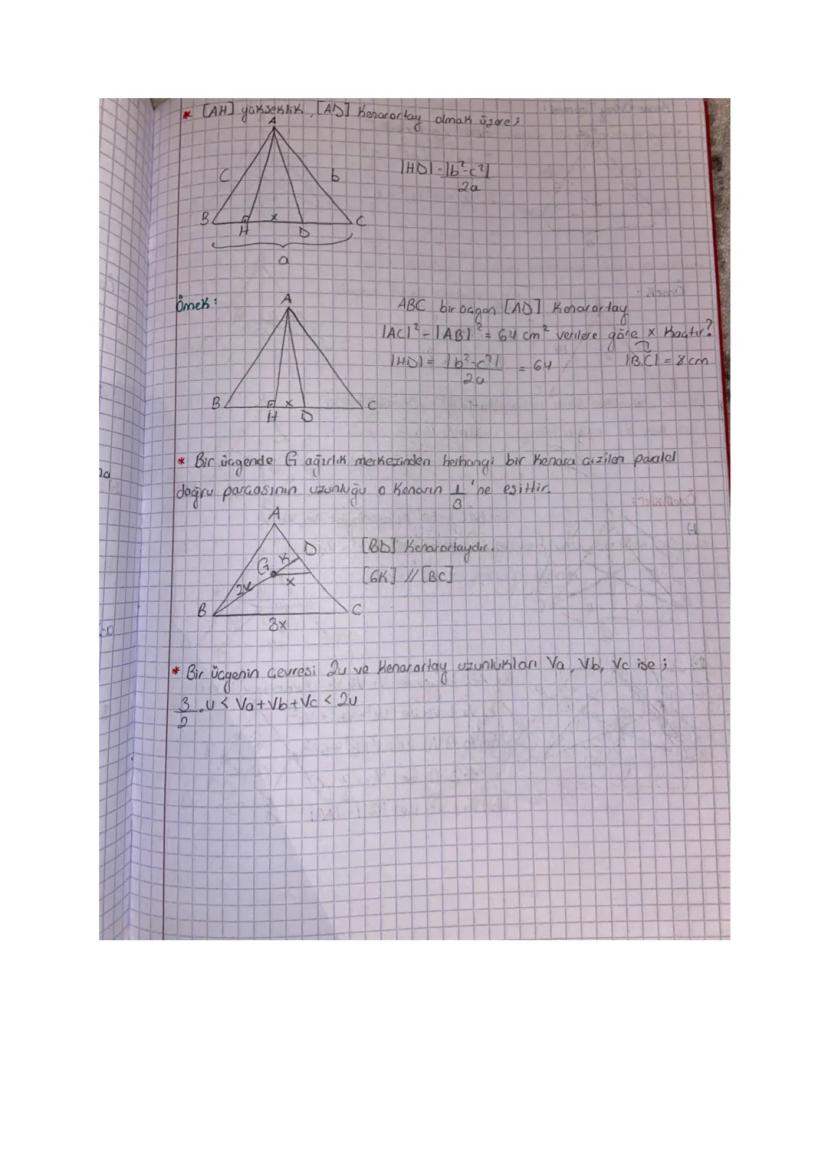 * [AH] yükseklik, [AD] Kenarortay olmak üzere;
A
c b
|HD| = |b²-c²|
2a
B H x D C
a
Örnek:
A
ABC bir üçgen [AD] Kenarortay
|AC|² - |AB|² = 64 cm² verilere göre x Kaçtır?
|HD| = |b²-c²| = 64
2a
|BC| = 8 cm
B H x D C
* Bir üçgende G ağırlık merkezinden herhangi bir Kenara çizilen paralel
doğru parçasının uzunluğu o Kenarın 1/3 'ne eşittir.
A
D
G K
2K x
B C
3x
[BD] Kenarortaydır.
[GK] // [BC]
* Bir üçgenin çevresi 2u ve Kenarortay uzunlukları Va, Vb, Vc ise;
3/2 .u < Va+Vb+Vc < 2u